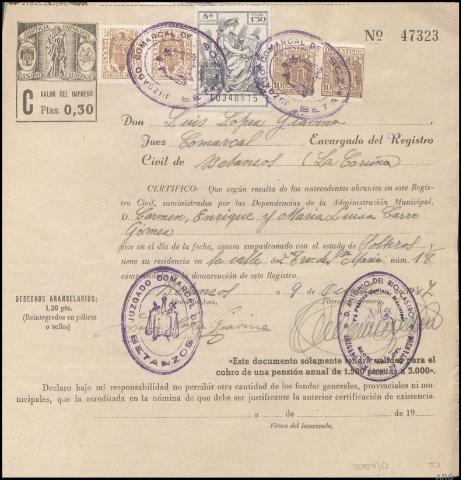 JUSTICIA MUNICIPAL
C VALOR DEL IMPRESO:
Ptas. 0,30
8ª CLASE
1'50
10348615
JUZGADO COMARCAL DE BETANZOS
JUZGADO COMARCAL DE BETANZOS
Nº 47323
Don Luis López Graviña
Juez Comarcal Encargado del Registro
Civil de Betanzos (La Coruña)
CERTIFICO: Que según resulta de los antecedentes obrantes en este Regis-
tro Civil, suministrados por las Dependencias de la Administración Municipal,
D. Carmen, Enrique y María Luisa Carro
Gómez
vive en el día de la fecha, consta empadronado con el estado de Solteros y
tiene su residencia en la calle de Stª María núm. 18
la demarcación de este Registro.
DERECHOS ARANCELARIOS:
1,20 ptas.
(Reintegrados en pólizas
o sellos)
a 9 de
JUZGADO COMARCAL DE BETANZOS
D. ANTONIO DEL RIO CASTRO
«Este documento solamente tendrá validez para el
cobro de una pensión anual de 1.500 pesetas a 3.000».
Declaro bajo mi responsabilidad no percibir otra cantidad de los fondos generales, provinciales ni mu-
nicipales, que la acreditada en la nómina de que debe ser justificante la anterior certificación de existencia.
a de de 19
Firma del Interesado,